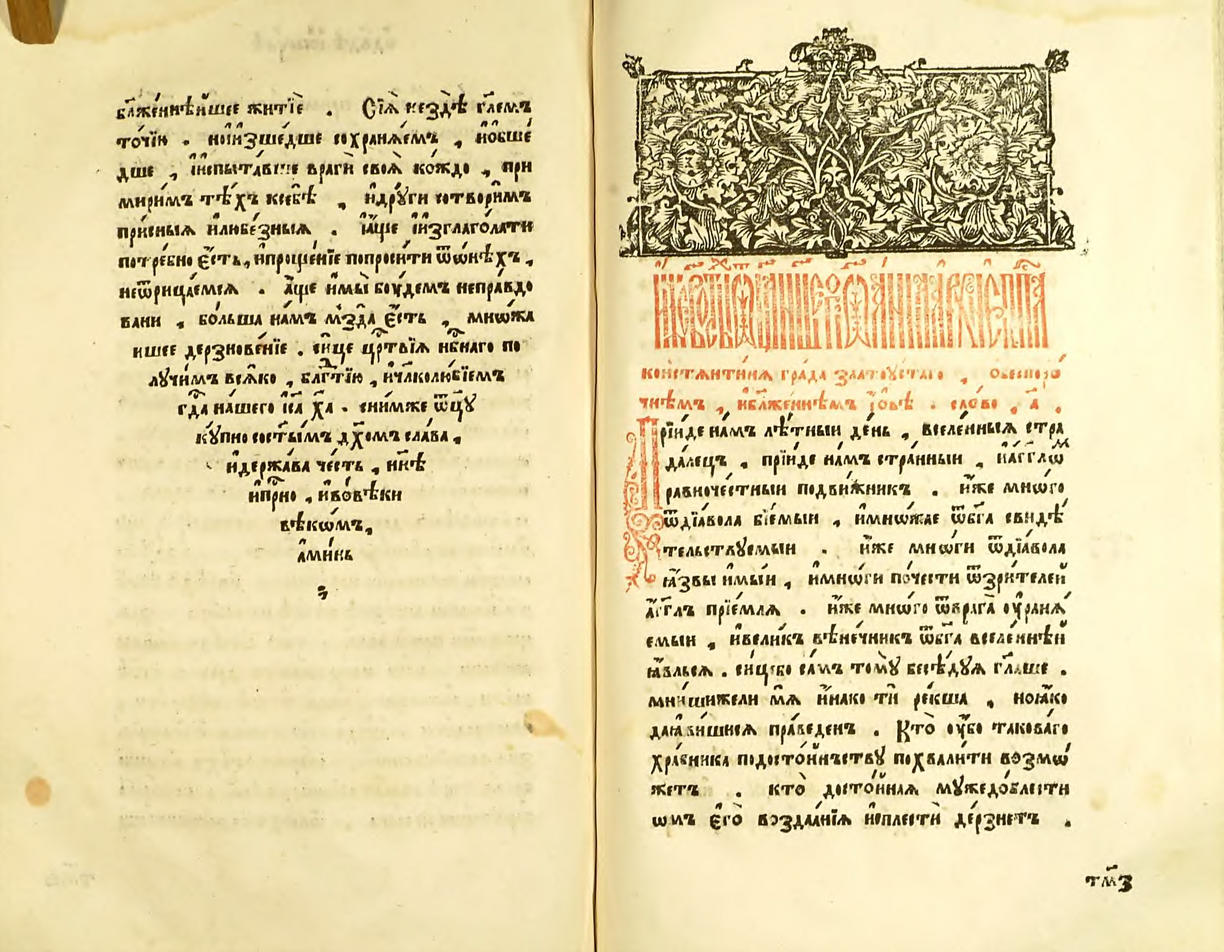 бл҃же́ннѣйшее житїѐ . Сїѧ̀ не здѣ̀ гл҃емъ
то́чїю . но и҆изше́дше сохранѧ́емъ , и҆ѡбше́
дше , и҆испыта́вше врагѝ своѧ̀ ко́ждо , при
мири́мъ тѣ́хъ ксебѣ̀ , и҆дрꙋ́ги сотвори́мъ
при́сныѧ и҆любе́зныѧ . ꙗ҆́ще и҆изглаго́лати
потре́бно є҆́сть , и҆проще́нїе попроси́ти ѿѡни́хъ ,
неѿрица́емсѧ . а҆́ще и҆мы̀ бꙋ́демъ непра́вдо
вани , бо́льша на́мъ мздѐ є҆́сть , мно́жа
ишее дерзнове́нїе . си́це црⷭ҇твїѧ нбⷭ҇наго по
лꙋчи́мъ всѧ́ко , блгⷣтїю , и҆чл҃колю́бїемъ
гдⷭ҇а на́шего і҆с҃а х҃а . сни́мже ѻ҆ц҃ꙋ̀
кꙋ́пно состы́мъ дх҃омъ сла́ва ,
и҆держа́ва че́сть , ны́нѣ
и҆прⷭ҇но , и҆вовѣ́ки
вѣкѡ́мъ ,
а҆ми́нь
константи́нѧ гра́да златоꙋ́стаго ,
чнѣмъ , и҆бл҃же́ннѣмъ і҆́ѡвѣ . сло́во , а҃ .
Прїи́де на́мъ лѣ́тныи де́нь , вселе́нныѧ стра
да́лецъ , прїи́де на́мъ стра́нныи , и҆а҆́гг҃лѡⷨ
равноче́стныи подви́жникъ . и҆́же мно́го
ѿдїа́вола бїе́мыи , и҆мно́жае ѿбг҃а свидѣ́
тельствꙋемыи . и҆́же мно́ги ѿдїа́вола
ꙗ҆́звы и҆мы́и , и҆мно́ги по́чести ѿзри́телей
а҆́гг҃лъ прїе́млѧ . и҆́же мно́го ѿврага̀ ᲂу҆ранѧ́
емыи , и҆вели́къ вѣне́чникъ ѿбг҃а вселе́ннѣй
ꙗ҆́вльсѧ . си́цебо са́мъ томꙋ̀ бесѣ́дꙋѧ гл҃аше .
мни́шижели мѧ̀ и҆́нако тѝ ре́кша , но ꙗ҆́ко
даꙗви́шисѧ пра́веденъ . Кто̀ ᲂу҆́бо такова́го
хра́бника подосто́инъствꙋ похвали́ти возмѡ́
жетъ . кто̀ досто́йнаѧ мꙋжедо́блести
ѡмъ є҆гѡ̀ возда́анїѧ исплестѝ де́рзнетъ .
тм҃з